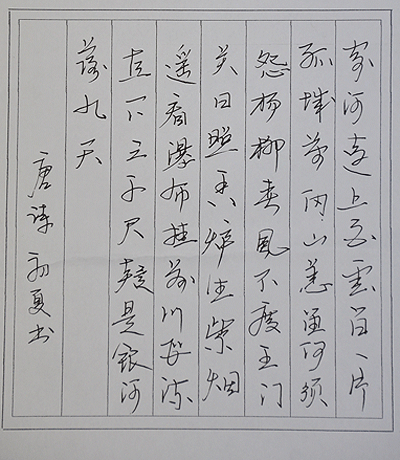 黄河远上白雲间一片
孤城萬仞山羌笛何须
怨杨柳春風不度玉门
关日照香炉生紫烟
遥看瀑布挂前川飞流
直下三千尺疑是银河
落九天
唐诗 初夏书